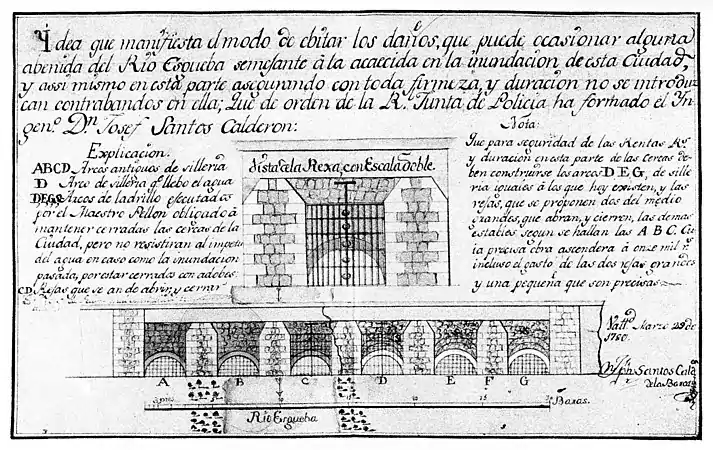 Idea que manifiesta el modo de ebitar los daños, que puede ocasionar alguna
abenida del Rio Esqueba semejante à la acaecida en la inundacion de esta Ciudad
y assi mismo en esta parte asegurando con toda firmeza, y duracion no se introduz
can contrabandos en ella; Que de orden de la Rl. Junta de Policia ha formado el In
geno. Dn Josef Santos Calderon:
Explicacion.
ABCD Arcos antiguos de silleria
D Arco de silleria qe. llebo el agua
DEGF Arcos de ladrillo efecutados
por el Maestro Pellon obligado à
mantener cerradas las cercas de la
Ciudad, pero no resistiran al impetu
del agua en caso como la inundacion
pasada, por estar cerrados con adobes.
CD Rejas que se an de abrir y cerrar
Vista de la Rexa, con Escala doble.
Nota:
Que para seguridad de las Rentas Rs.
y duracion en esta parte de las cercas de-
ben construirse los arcos DEG, de sille
ria iguales à los que hoy existen, y las
rejas, que se proponen dos del medio
grandes, que abran, y cierren, las demas
estables segun se hallan las A B C. Cu
ia precisa obra ascendera à onze mil rs.
incluso el gasto de las dos rejas grandes
y una pequeña que son precisas
Valld. Marzo 29 de
1780.
Josph Santos Cald
de la Barca
A B C D E F G
10 15 Baras.
Rio Ezgueba